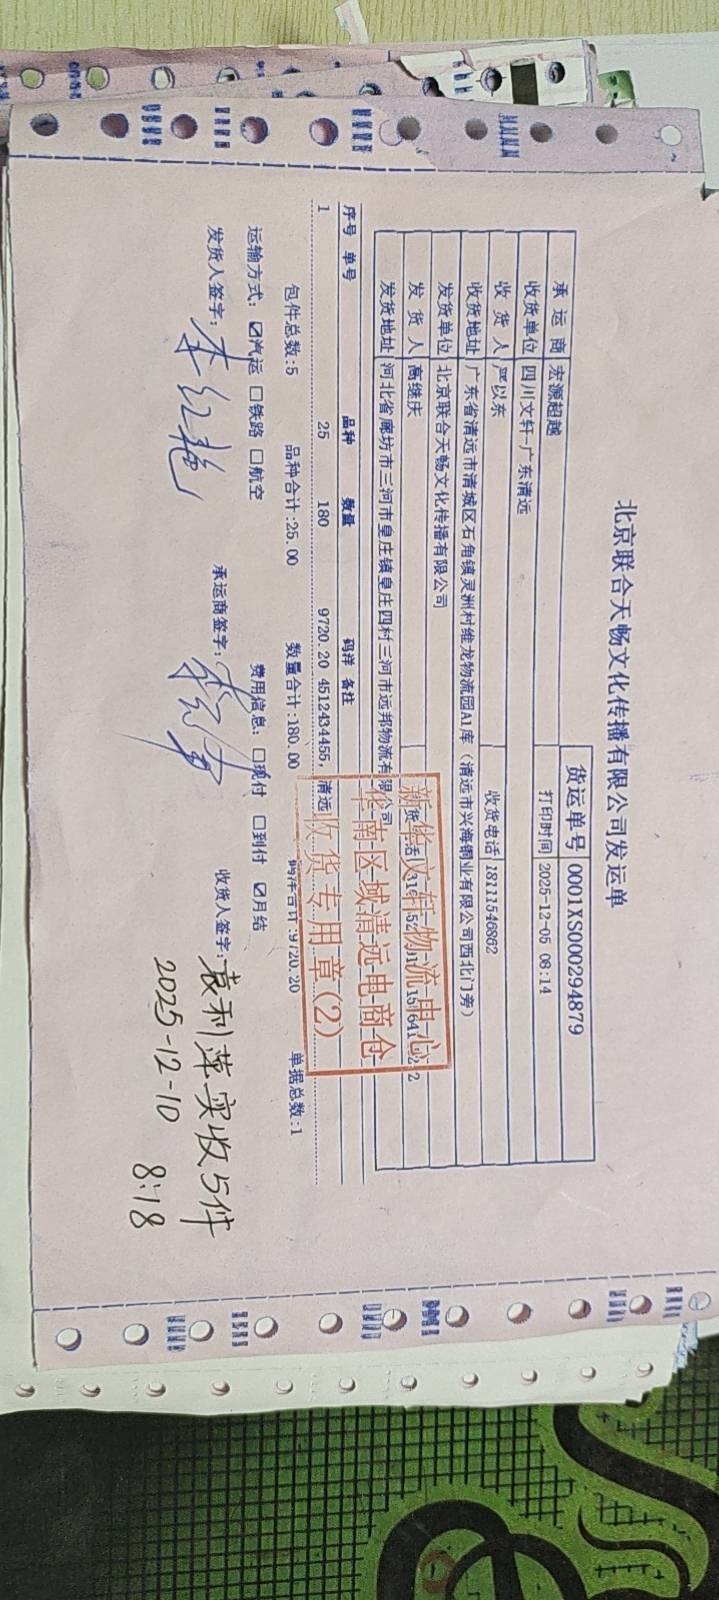 北京联合天畅文化传播有限公司发运单
货运单号 0001XS000294879
承运商 宏源超越 打印时间 2025-12-05 08:14
收货单位 四川文轩-广东清远
收货人 严以东 收货电话 18111546862
收货地址 广东省清远市清城区石角镇灵洲村维龙物流园A1库（清远市兴海铜业有限公司西北门旁）
发货单位 北京联合天畅文化传播有限公司
发货人 高继庆
发货地址 河北省廊坊市三河市皇庄镇皇庄四村三河市远邦物流有限公司
序号 单号 品种 数量 码洋 备注
1 25 180 9720.20 4512434455, 清远
包件总数:5 品种合计:25.00 数量合计:180.00 码洋合计:9720.20 单据总数:1
运输方式: ☑汽运 □铁路 □航空 费用信息: □现付 □到付 ☑月结
发货人签字: 承运商签字: 收货人签字: 袁利萍实收5件
2025-12-10 8:18
新华文轩物流中心
华南区域清远电商仓
收货专用章(2)